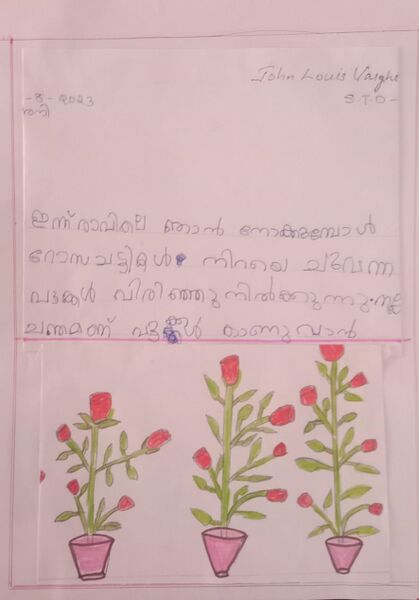 John Louis Varghe
-8-2023
STD-
ശനി
ഇന്ന് രാവിലെ ഞാൻ നോക്കുമ്പോൾ
റോസചട്ടികൾ നിറയെ ചുവന്ന
പൂക്കൾ വിരിഞ്ഞു നിൽക്കുന്നു. നല്ല
ചന്തമാണ് പൂക്കൾ കാണുവാൻ